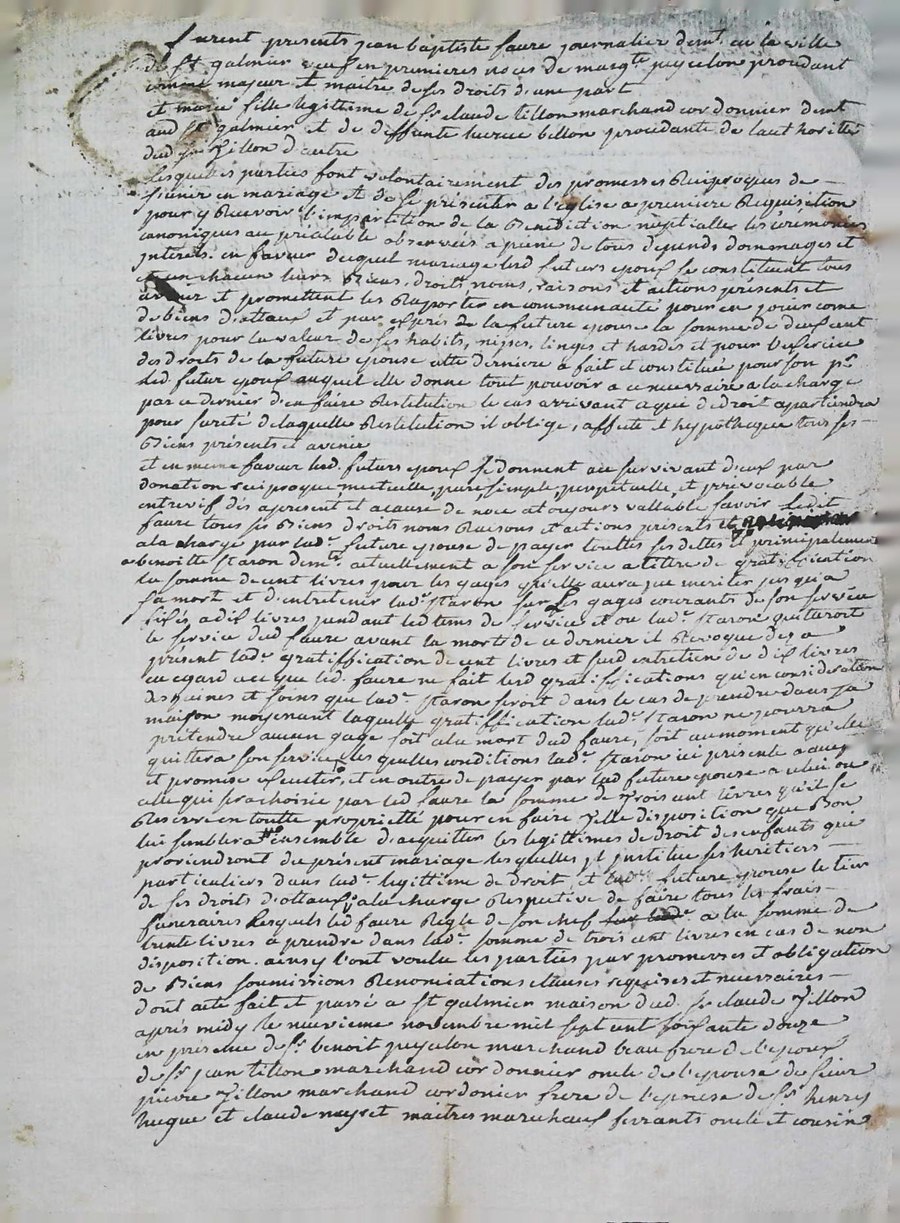 furent presents jean baptiste faure journalier demt. en la ville
de st galmier veuf en premieres noces de margte. peycelon procedant
comme majeur et maitre de ses droits d'une part
et fille legittime de sr. claude tillon marchand cordonnier demt
aud st galmier et de deffunte billon procedante de lauthorité
dud sr. tillon d'autre
lesquelles parties font volontairement des promesses Reciproques de
s'unir en mariage et de se présenter a l'eglise a premiere Requisition
pour y Recevoir l'impartition de la Benediction nuptialle les cérémonies
canoniques au préalable observées a peine de tous dépends dommages et
interets. en faveur duquel mariage lesd futurs epoux se constituent tous
et un chacun leurs Biens, droits noms, raisons et actions présents et
avenir et promettent les Raporter en communauté pour en jouir come
de biens dottaux et par exprés de la future epouse la somme de deux cent
livres pour la valeur de ses habits, nipes, linges et hardes et pour l'exercice
des droits de la future epouse cette derniere a fait et constitué pour son pr.
led. futur epoux auquel elle donne tout pouvoir a ce necessaire a la charge
par ce dernier d'en faire Restitution le cas arrivant a qui de droit apartiendra
pour sureté de laquelle Restitution il oblige, affecte et hypotheque tous ses
Biens présents et avenir
et en meme faveur lesd. futurs epoux se donnent au survivant d'eux par
donation reciproque mutuelle, pure simple, perpetuelle, et irrévocable
entrevif dés apresent et a cause de noce et toujours vallable savoir ledit
faure tous ses Biens droits noms Raisons et actions présents et
a la charge par lade. future epouse de payer touttes ses dettes et principalement
a benoitte staron demt. actuellement a son service a titre de gratiffication
la somme de cent livres pour les gages qu'elle aura pu meriter jusqu'a
sa mort et d'entretenir lade. staron sur les gages courants de son service
fixés a dix livres pendant led tems de service et ou lade. staron quitteroit
le service dud faure avant la mort de ce dernier il Revoque des a
présent lade. gratiffication de cent livres et sud entretien de dix livres
eu egard a ce que led. faure ne fait lesd gratiffications qu'en consideration
des peines et soins que lade. staron seroit dans le cas de prendre dans sa
maison moyenant laquelle gratiffication lade. staron ne pourra
prétendre aucun gage soit a la mort dud faure, soit au moment qu'elle
quittera son service, lesquelles conditions lade. staron ici présente a
et promise executer, et en outre de payer par lad future epouse a celui ou
celle qui sera choisie par led faure la somme de trois cent livres qu'il se
Reserve en toutte propriette pour en faire telle disposition que Bon
lui semblera ensemble d'acquitter les legittimes de droit des enfants qui
proviendront du present mariage lesquelles il institue ses heritiers
particuliers dans lade. legittime de droit et lade. future epouse le tiers
de ses droits dottaux, a la charge Respective de faire tous les frais
funeraires lesquels led faure Regle de son chef a la somme de
trente livres a prendre dans lade. somme de trois cent livres en cas de non
disposition. ainsy l'ont voulu les parties par promesses et obligation
de Biens soumissions Renonciations clauses requises et necessaires
dont acte fait et passé a st galmier maison dud. sr claude tillon
aprés midy le neuvieme novembre mil sept cent soixante douze
en présence de sr. benoit peycelon marchand beau frere de l'epoux
de sr. jean tillon marchand cordonnier oncle de l'epouse de sieur
pierre tillon marchand cordonier frere de l'epouse de sr. henry
hugue et claude neyret maitres marechaux ferrants oncle et cousin